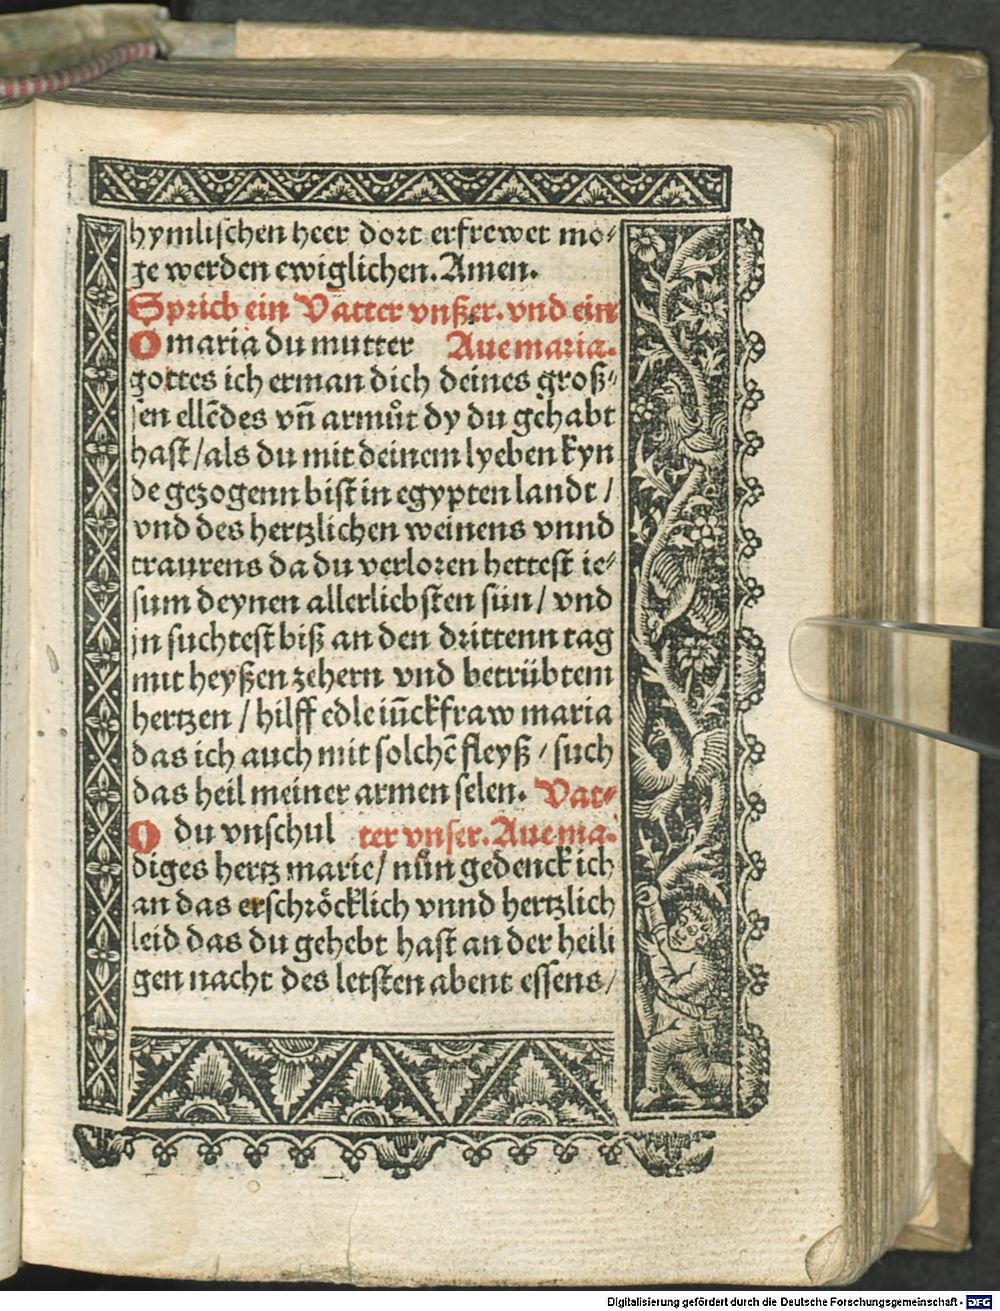 hymlischen heer dort erfrewet mo⸗
ge werden ewiglichen. Amen.
Sprich ein Vatter vnßer. vnd ein
O maria du mutter Aue maria.
gottes ich erman dich deines groß⸗
sen ellēdes vn̄ armůt dy du gehabt
hast / als du mit deinem lyeben kyn
de gezogenn bist in egypten landt /
vnd des hertzlichen weinens vnnd
traurens da du verloren hettest ie⸗
sum deynen allerliebsten sün / vnd
jn suchtest biß an den drittenn tag
mit heyßen zehern vnd betrübtem
hertzen / hilff edle iūckfraw maria
das ich auch mit solchē fleyß / such
das heil meiner armen selen. Vat⸗
O du vnschul ter vnser. Aue ma.
diges hertz marie / nůn gedenck ich
an das erschröcklich vnnd hertzlich
leid das du gehebt hast an der heili
gen nacht des letsten abent essens /
Digitalisierung gefördert durch die Deutsche Forschungsgemeinschaft - DFG